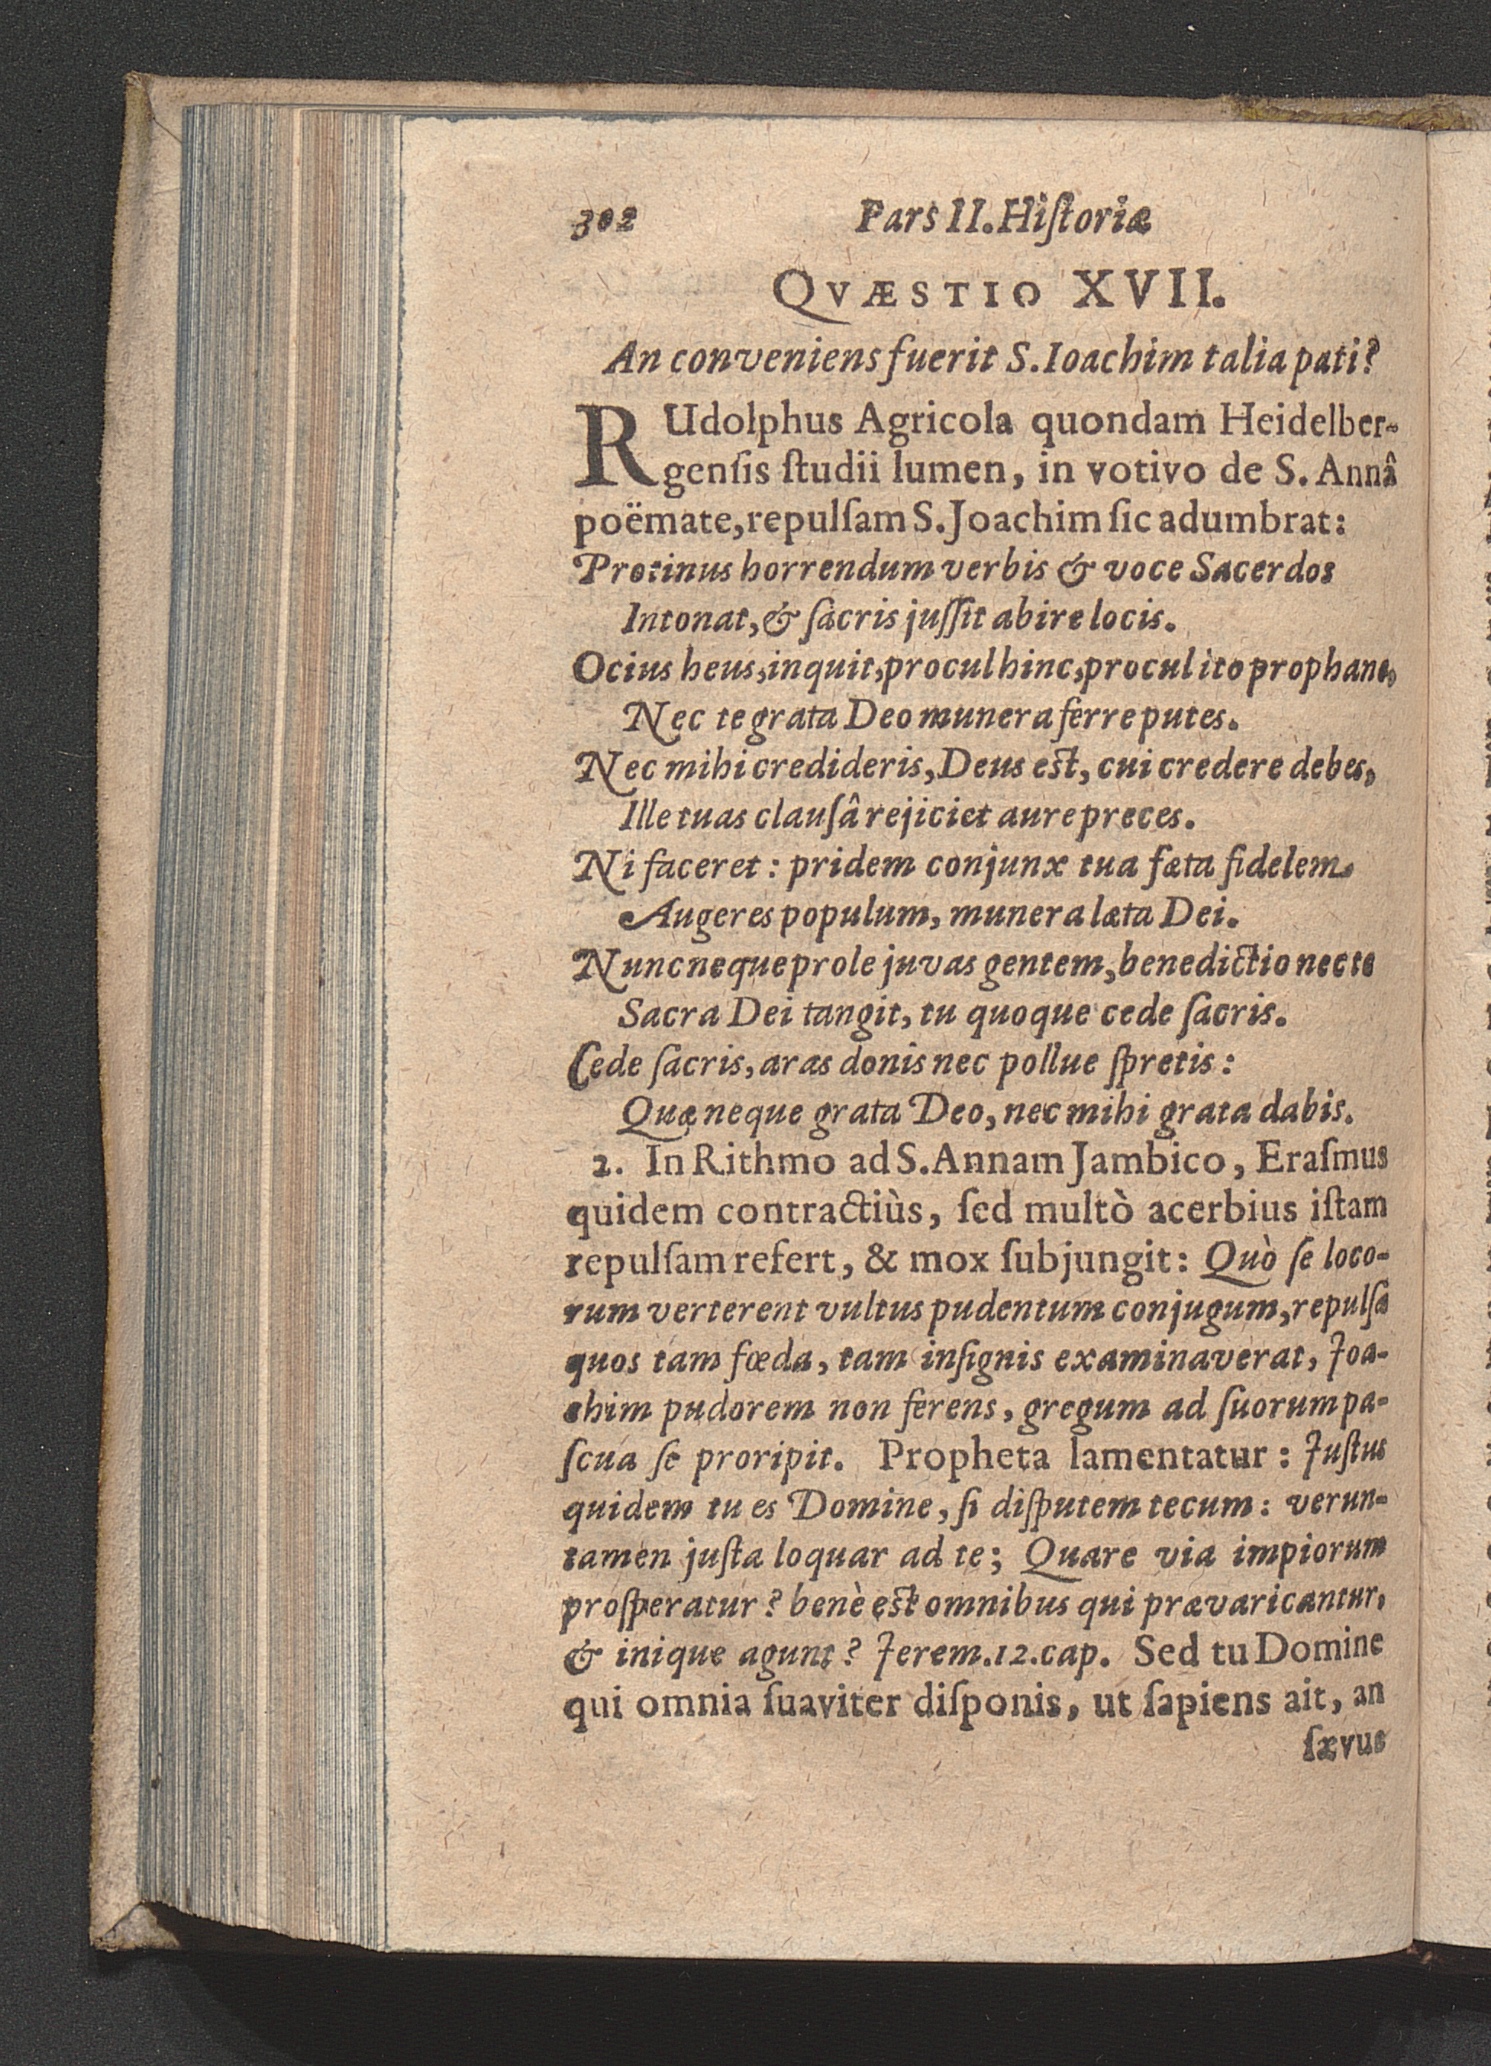 302 Pars II. Hiſtoriæ
QVÆSTIO XVII.
An conveniens fuerit S. Ioachim talia pati?
RUdolphus Agricola quondam Heidelber-
genſis ſtudii lumen, in votivo de S. Annâ
poëmate, repulſam S. Joachim ſic adumbrat:
Protinus horrendum verbis & voce Sacerdos
Intonat, & ſacris juſſit abire locis.
Ocius heus, inquit, procul hinc, procul ito prophane,
Nec te grata Deo munera ferre putes.
Nec mihi credideris, Deus est, cui credere debes,
Ille tuas clauſâ rejiciet aure preces.
Ni faceret: pridem conjunx tua fæta fidelem
Augeres populum, munera læta Dei.
Nunc neque prole juvas gentem, benedictio nec te
Sacra Dei tangit, tu quoque cede ſacris.
Cede ſacris, aras donis nec pollue ſpretis:
Quæ neque grata Deo, nec mihi grata dabis.
2. In Rithmo ad S. Annam Jambico, Eraſmus
quidem contractiùs, ſed multò acerbius iſtam
repulſam refert, & mox ſubjungit: Quò ſe loco-
rum verterent vultus pudentum conjugum, repulſa
quos tam fœda, tam inſignis examinaverat, Joa-
chim pudorem non ferens, gregum ad ſuorum pa-
ſcua ſe proripit. Propheta lamentatur: Juſtus
quidem tu es Domine, ſi diſputem tecum: verun-
tamen juſta loquar ad te; Quare via impiorum
proſperatur? benè est omnibus qui prævaricantur,
& inique agunt? Jerem. 12. cap. Sed tu Domine
qui omnia ſuaviter diſponis, ut ſapiens ait, an
ſævus